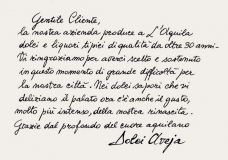 Gentile Cliente,
la nostra azienda produce a L'Aquila
dolci e liquori tipici di qualità da oltre 30 anni.
Vi ringraziamo per averci scelto e sostenuto
in questo momento di grande difficoltà per
la nostra città. Nei dolci sapori che vi
deliziano il palato ora c'è anche il gusto,
molto più intenso, della nostra rinascita.
Grazie dal profondo del cuore aquilano
Dolci Aveja